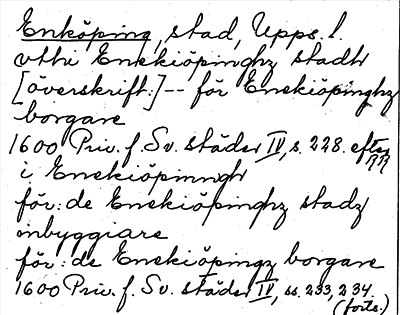 Enköping, stad, Upps. l.
vthi Enekiöpinghz stadh
[överskrift:]-- för Enekiöpinghz
borgare
1600 Priv. f. Sv. städer IV, s. 228. efter
i Enekiöpinngh
för: de Enekiöpinghz stadz
inbyggiare
för: de Enekiöpingz borgare
1600 Priv. f. Sv. städer IV, ss. 233, 234.
(forts.)